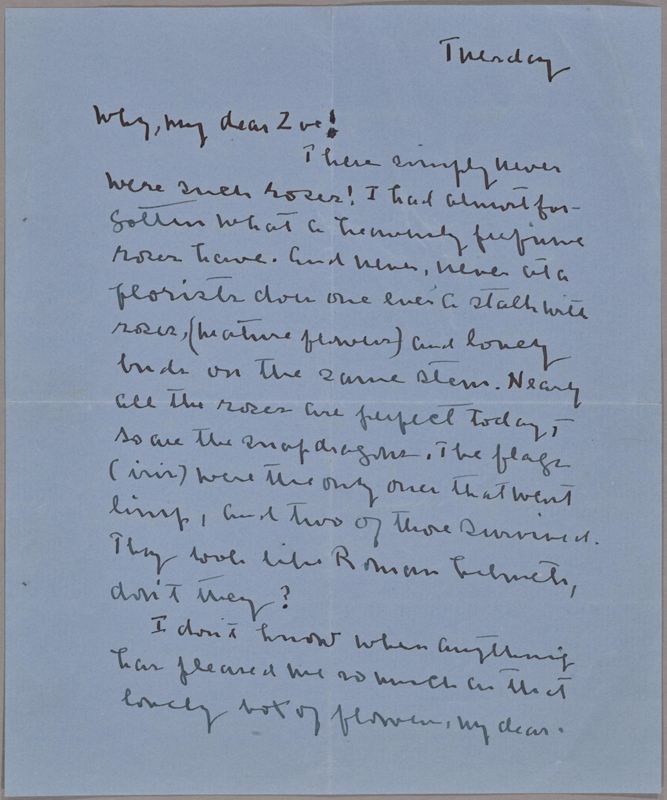 Tuesday
Why, my dear Zoe!
There simply never
were such roses! I had almost for-
gotten what a heavenly perfume
roses have. And never, never at a
florists does one ever a stalk with
roses, (mature flowers) and lovely
buds on the same stem. Nearly
all the roses are perfect today,
so are the snapdragons. The flags
(iris) were the only ones that went
limp, and two of those survived.
They look like Roman helmets,
don't they?
I don't know when anything
has pleased me so much as that
lovely box of flowers, my dear.